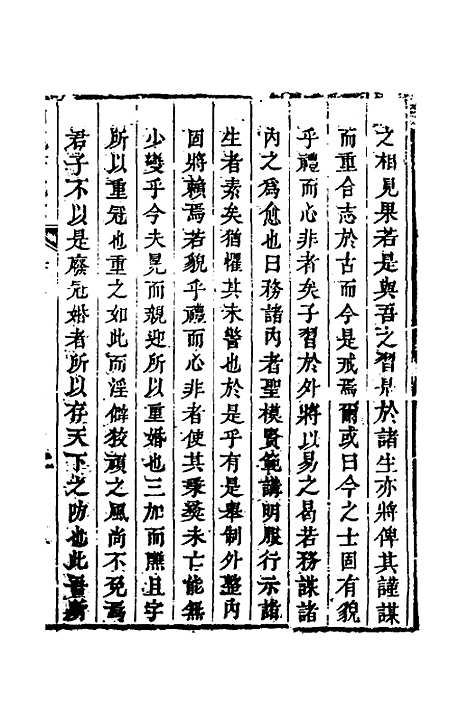 之相見果若是與吾之習是於諸生亦將俾其謹謀
而重合志於古而今是戒焉爾或曰今之士固有貌
乎禮而心非者矣子習於外將以易之曷若務謀諸
內之為愈也曰務諸內者聖模賢範講明服行示諸
生者素矣猶懼其未警也於是乎有是舉制外整內
固將賴焉若貌乎禮而心非者使其秉彛未亡能無
少變乎今夫冕而親迎所以重婚也三加而醮且字
所以重冠也重之如此而淫僻狡頑之風尚不免焉
君子不以是廢冠婚者所以存天下之防也此吾所